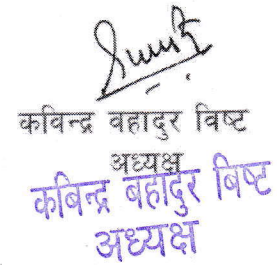 कविन्द्र वहादुर विष्ट
अध्यक्ष
कबिन्द्र बहादुर बिष्ट
अध्यक्ष